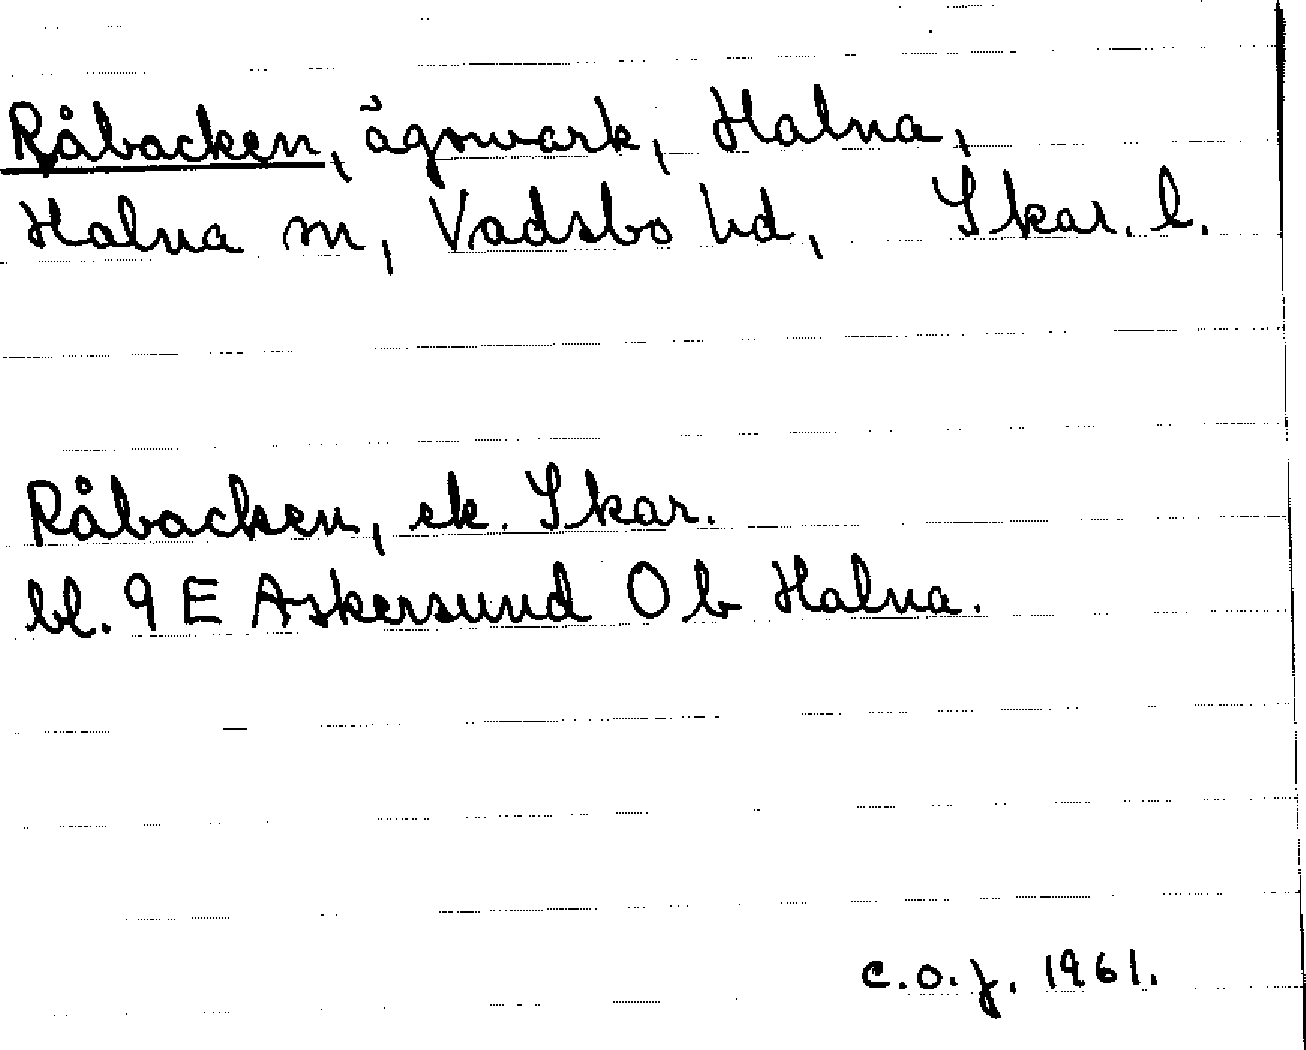 Råbacken, ägomark, Halna,
Halna sn, Vadsbo hd, Skar. l.
Råbacken, ek. Skar.
bl. 9 E Askersund O b Halna.
C.O.J. 1961.